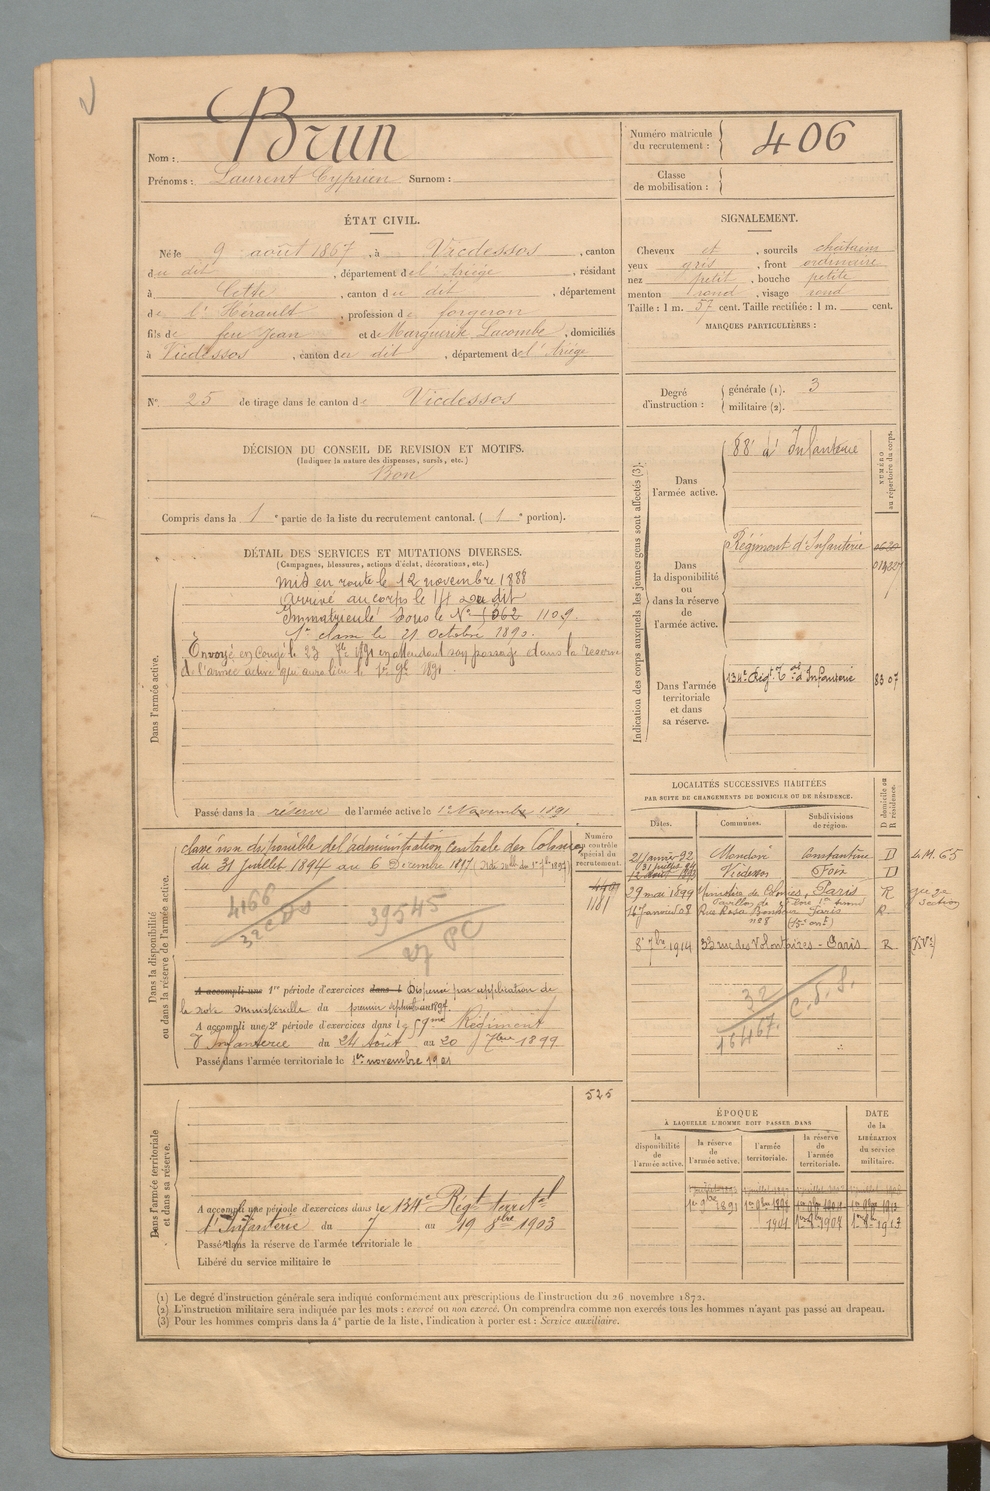 Brun
Nom :
Prénoms : Laurent Cyprien Surnom :
Numéro matricule du recrutement : 406
Classe de mobilisation :
ÉTAT CIVIL.
Né le 9 août 1867, à Vicdessos, canton
du dit, département de l'Ariège, résidant
à Cette, canton du dit, département
de l'Hérault, profession de forgeron
fils de feu Jean et de Marguerite Lacombe, domiciliés
à Vicdessos, canton du dit, département de l'Ariège
SIGNALEMENT.
Cheveux et, sourcils châtains
yeux gris, front ordinaire
nez petit, bouche petite
menton rond, visage rond
Taille : 1 m. 57 cent. Taille rectifiée : 1 m. cent.
MARQUES PARTICULIÈRES :
N° 25 de tirage dans le canton de Vicdessos
Degré d'instruction : générale (1). 3
militaire (2).
DÉCISION DU CONSEIL DE REVISION ET MOTIFS.
(Indiquer la nature des dispenses, sursis, etc.)
Bon
Compris dans la 1e partie de la liste du recrutement cantonal. (1e portion).
DÉTAIL DES SERVICES ET MUTATIONS DIVERSES.
(Campagnes, blessures, actions d'éclat, décorations, etc.)
Dans l'armée active.
Mis en route le 12 novembre 1888
Arrivé au corps le 14 du dit
Immatriculé sous le N° 1109.
1re classe le 21 Octobre 1890.
Envoyé en congé le 23 7bre 1891 en attendant son passage dans la réserve
de l'armée active qui aura lieu le 1er 9bre 1891
Passé dans la réserve de l'armée active le 1er Novembre 1891
Indication des corps auxquels les jeunes gens sont affectés (3).
NUMÉRO au répertoire du corps.
Dans l'armée active.
88e d'Infanterie
Dans la disponibilité ou dans la réserve de l'armée active.
Régiment d'Infanterie
Dans l'armée territoriale et dans sa réserve.
134e Régt Tal d'Infanterie 8307
Dans la disponibilité ou dans la réserve de l'armée active.
Numéro au contrôle spécial du recrutement.
classé non disponible de l'administration centrale des Colonies
du 31 juillet 1894 au 6 Décembre 1897
1181
4166
32 CDS
39545
27 PC
A accompli une 1re période d'exercices dans l Dispensé par application de
la note ministérielle du premier septembre 1897
A accompli une 2e période d'exercices dans le 59me Régiment
d'Infanterie du 24 Août au 20 7bre 1899
Passé dans l'armée territoriale le 1er novembre 1901
LOCALITÉS SUCCESSIVES HABITÉES
PAR SUITE DE CHANGEMENTS DE DOMICILE OU DE RÉSIDENCE.
DATES. COMMUNES. Subdivisions de région. D domicile ou R résidence.
21 janvier 92 Mondovi Constantine D 4 M. 65
Vicdessos Foix D
29 mai 1899 Ministère des Colonies, Paris R
Pavillon de Flore
14 janvier 08 Rue Rosa Bonheur Paris R.
n° 8 (15e arrt)
8 7bre 1914 33 rue des Volontaires - Paris R (XVe)
32
16467
C.S.S.
Dans l'armée territoriale et dans sa réserve.
525
A accompli une période d'exercices dans le 134e Régt territal
d'Infanterie du 7 au 19 8bre 1903
Passé dans la réserve de l'armée territoriale le
Libéré du service militaire le
ÉPOQUE
À LAQUELLE L'HOMME DOIT PASSER DANS
la disponibilité de l'armée active.
la réserve de l'armée active.
l'armée territoriale.
la réserve de l'armée territoriale.
DATE de la LIBÉRATION du service militaire.
1er 9bre 1891
1901
(1) Le degré d'instruction générale sera indiqué conformément aux prescriptions de l'instruction du 26 novembre 1872.
(2) L'instruction militaire sera indiquée par les mots : exercé ou non exercé. On comprendra comme non exercés tous les hommes n'ayant pas passé au drapeau.
(3) Pour les hommes compris dans la 4e partie de la liste, l'indication à porter est : Service auxiliaire.